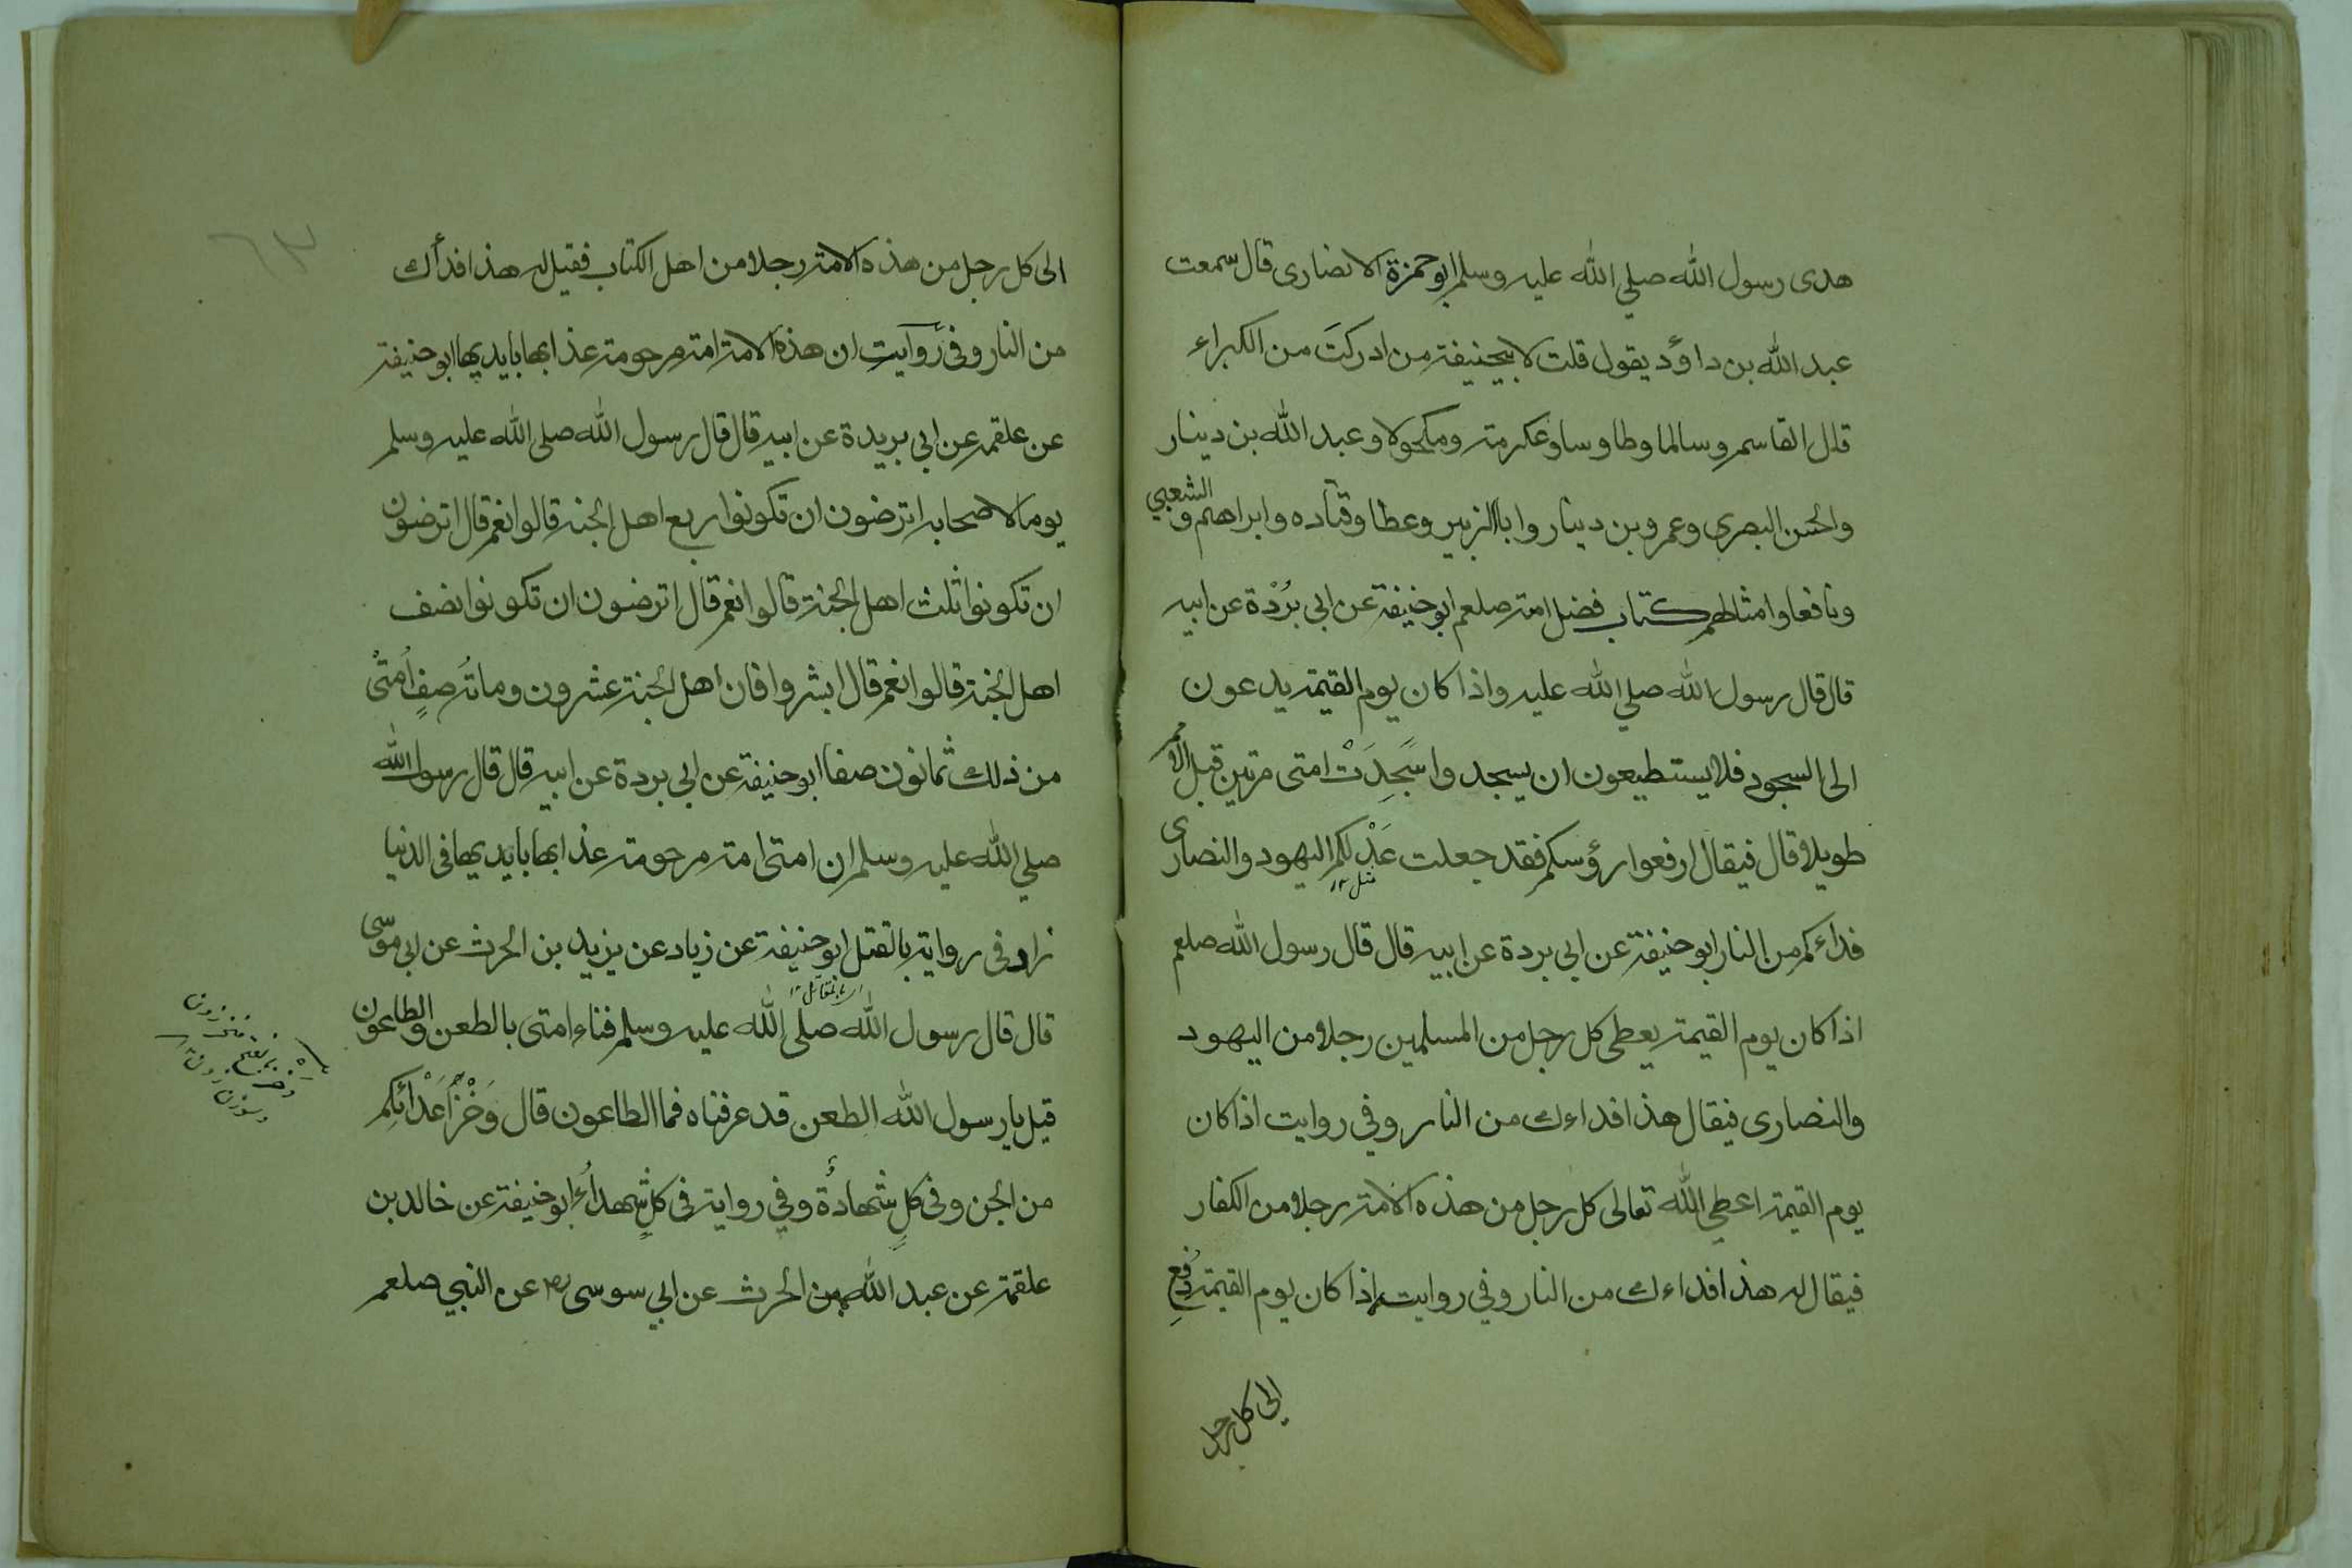 هدى رسول الله صلي الله عليه وسلم ابو حمزة الانصارى قال سمعت
عبد الله بن داؤد يقول قلت لابيحنيفة من ادركتَ من الكبراء
قال القاسم وسالما وطاوسا وعكرمة ومكحولا وعبد الله بن دينار
والحسن البصرى وعمرو بن دينار وابا الزبير وعطا وقتاده وابراهيم والشعبي
ونافعا وامثالهم كتاب فضل امته صلعم ابو حنيفة عن ابي بُرْدة عن ابيه
قال قال رسول الله صلي الله عليه واذا كان يوم القيمة يدعون
الى السجود فلا يستطيعون ان يسجدوا سَجَدَتْ امتى مرتين قبل الامم
طويلا قال فيقال ارفعوا رؤسكم فقد جعلت عَدْلكم اليهود والنصارى
مثل ١٢
فداءكم من النار ابو حنيفة عن ابي بردة عن ابيه قال قال رسول الله صلعم
اذا كان يوم القيمة يعطى كل رجل من المسلمين رجلا من اليهود
والنصارى فيقال هذا فداءك من النار وفي روايت اذا كان
يوم القيمة اعطي الله تعالى كل رجل من هذه الامة رجلا من الكفار
فيقال له هذا فداءك من النار وفي روايت اذا كان يوم القيمة دُفِعَ
الى كل رجل
٦٣
الى كل رجل من هذه الامة رجلا من اهل الكتاب فقيل له هذا فدأك
من النار وفى روايت ان هذه الامة امة مرحومة عذابها بايديها ابو حنيفة
عن علقمه عن ابي بريدة عن ابيه قال قال رسول الله صلى الله عليه وسلم
يوما لاصحابه اترضون ان تكونوا ربع اهل الجنة قالوا نعم قال اترضون
ان تكونوا ثلث اهل الجنة قالوا نعم قال اترضون ان تكونوا نصف
اهل الجنة قالوا نعم قال ابشروا فان اهل الجنة عشرون ومائة صفٍ اُمتى
من ذلك ثمانون صفا ابو حنيفة عن ابي بردة عن ابيه قال قال رسول الله
صلي الله عليه وسلم ان امتى امة مرحومة عذابها بايديها فى الدنيا
زاد فى رواية بالقتل ابو حنيفة عن زياد عن يزيد بن الحرث عن ابي موسى
قال قال رسول الله صلى الله عليه وسلم فناء امتى بالطعن والطاعون
قيل يا رسول الله الطعن قد عرفناه فما الطاعون قال وَخْزُ اَعْدَائِكم
من الجن وفى كلٍ شهادةُ وفي رواية فى كلٍ شهداءُ ابو حنيفة عن خالد بن
علقمة عن عبد الله بن الحرث عن ابي سوسى عن النبي صلعم